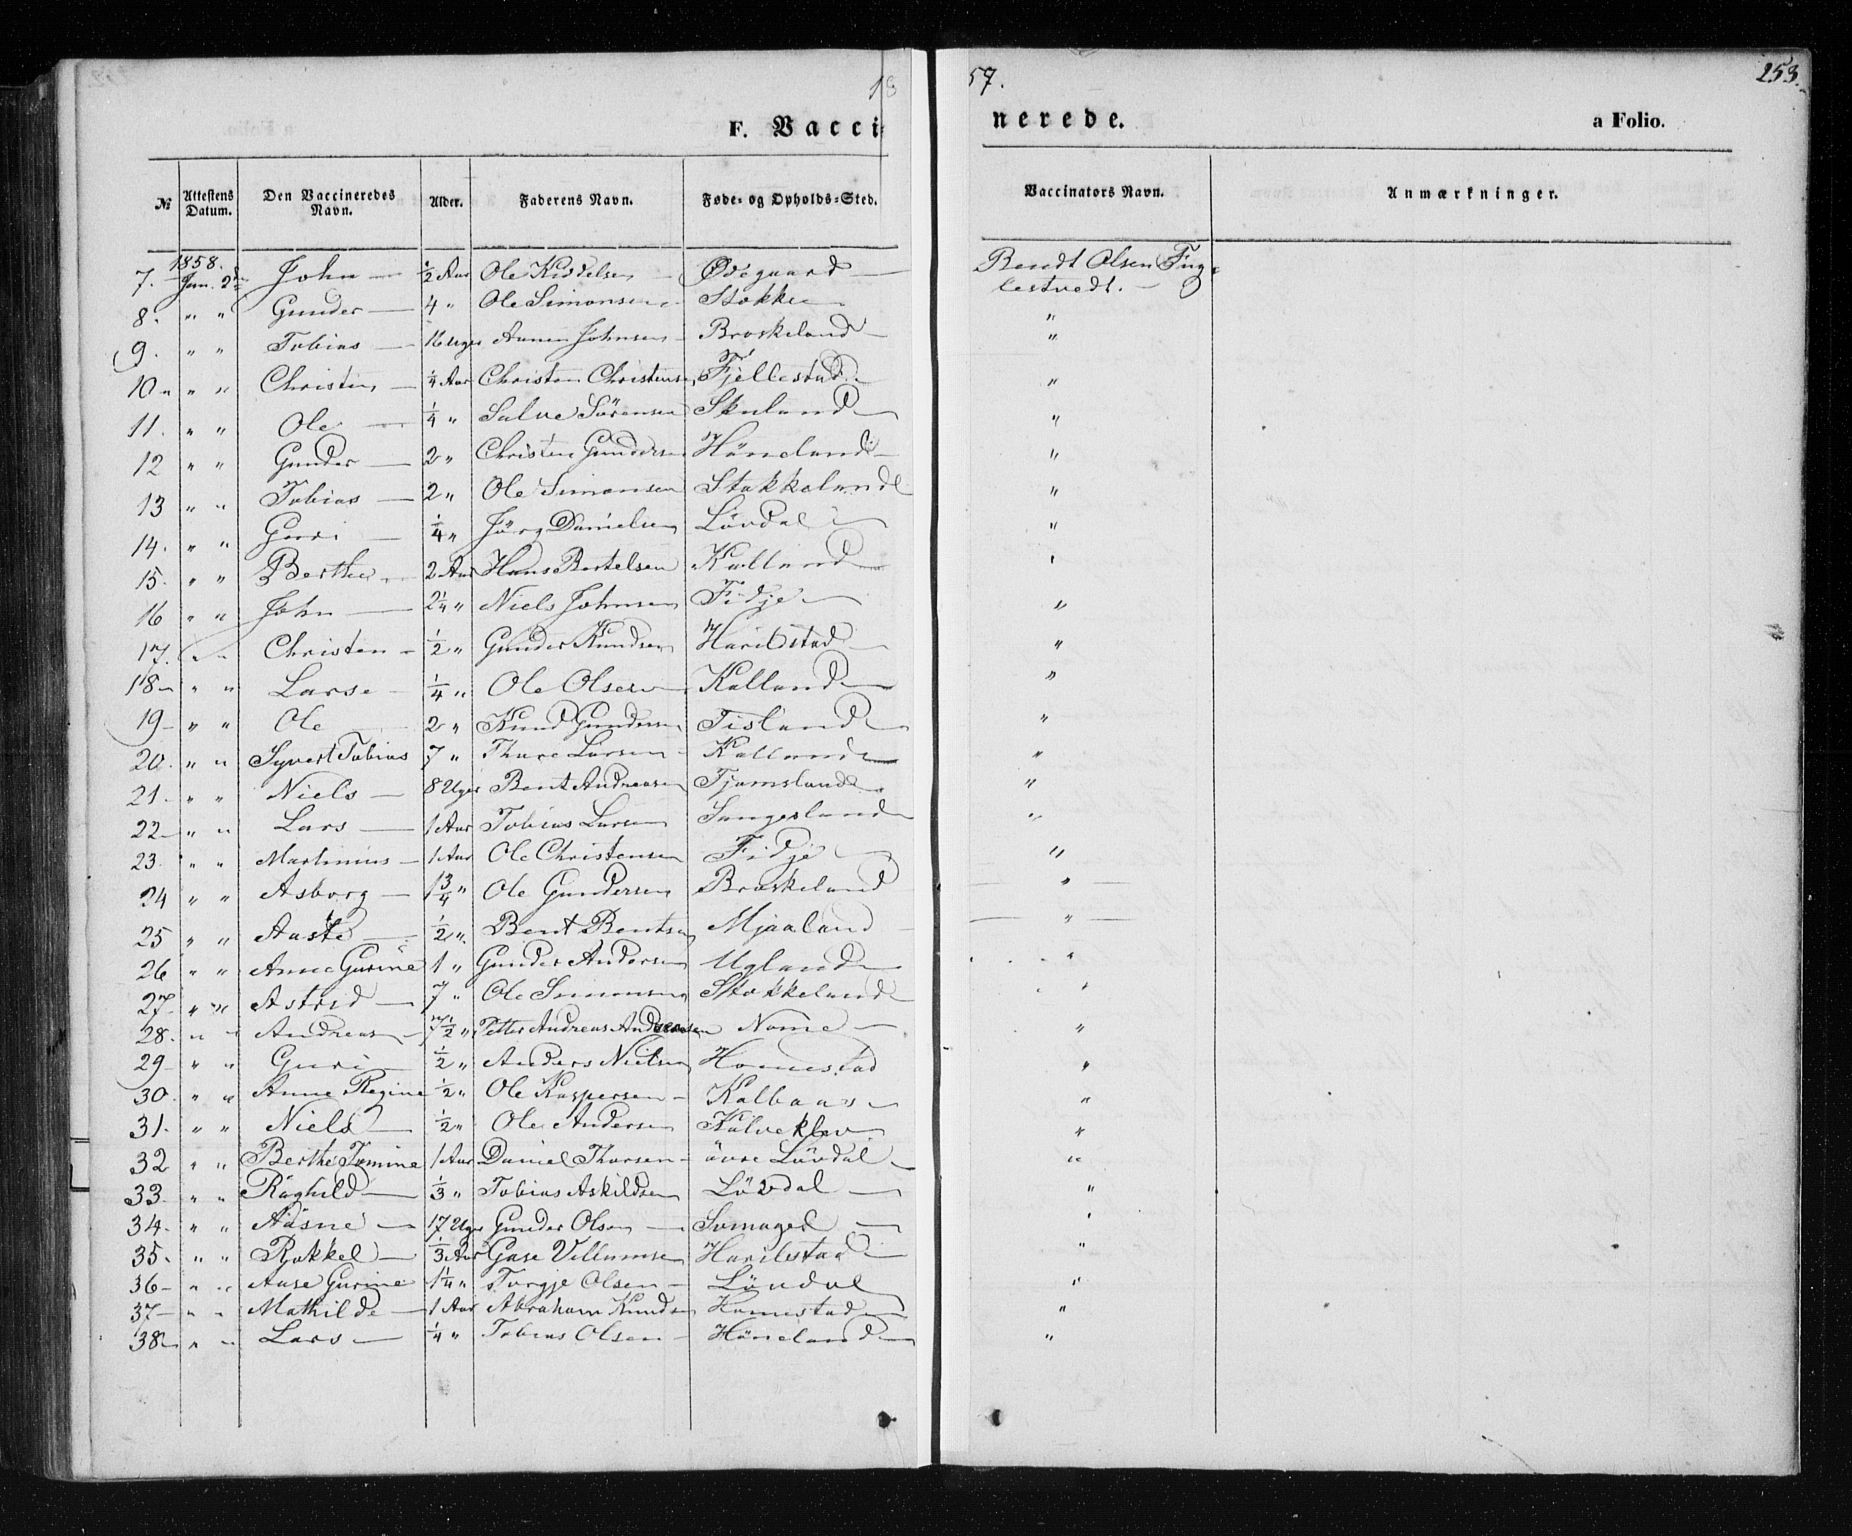 1857. 253.
F. Vaccinerede. a Folio.
№ Attestens Datum. Den Vaccineredes Navn. Alder. Faderens Navn. Føde- og Opholds-Sted. Vaccinators Navn. Anmærkninger.
1858.
7. Jan. 2d John — ½ Aar Ole Kiddelsen Ødegaard — Bendt Olsen Fug-
lestvedt. —
8. " " Gunder — 4 " Ole Simonsen Stokke "
9. " " Tobias — 16 Uger Aanen Johnsen Broskeland — "
10 " " Christen — ¼ Aar Christen Christensen Fjellestad "
11. " " Ole — ¼ " Salve Sörensen Skuland "
12 " " Gunder — 2 " Christen Gundersen Höneland "
13 " " Tobias — 2 " Ole Simonsen Stokkeland "
14. " " Guri — ¼ " Jörg Danielsen Lövdal "
15. " " Berthe 2 Aar Hans Bertelsen Kalland "
16 " " John — 2¼ " Niels Johnsen Fidje "
17. " " Christen ½ " Gunder Knudsen Harilstad "
18 " " Larse ¼ " Ole Olsen Kalland "
19 " " Ole 2 " Knud Gundersen Tisland "
20. " " Syvert Tobias 7 " Thore Larsen Kalland "
21. " " Niels — 8 Uger Bent Andreasen Tjomsland "
22 " " Lars — 1 Aar Tobias Larsen Sangesland "
23. " " Martinius 1 Aar Ole Christensen Fidje "
24 " " Asborg — 1¾ " Ole Gundersen Broskeland "
25 " " Aaste ½ " Bent Bentsen Mjaaland "
26 " " Anne Gurine 1 " Gunder Andersen Ugland "
27 " " Astrid — 7 " Ole Simonsen Stokkeland "
28. " " Andreas — 7½ " Petter Andreas Andreasen Nome — "
29 " " Guri ½ " Anders Nielsen Homestad "
30. " " Anne Regine ½ " Ole Kaspersen Kalbaas "
31. " " Niels ½ " Ole Andersen Kalveklev "
32 " " Berthe Tomine 1 Aar Daniel Thorsen övre Lövdal "
33. " " Raghild — ⅓ " Tobias Askildsen Lövdal — "
34. " " Aasne — 17 Uger Gunder Olsen — "
35. " " Rakkel — ⅓ Aar Gase Villumsen Harilestad "
36 " " Aase Gurine 1¼ " Torgje Olsen Lövdal "
37 " " Mathilde — 1 Aar Abraham Knudsen Homestad "
38 " " Lars — ¼ " Tobias Olsen Höneland "